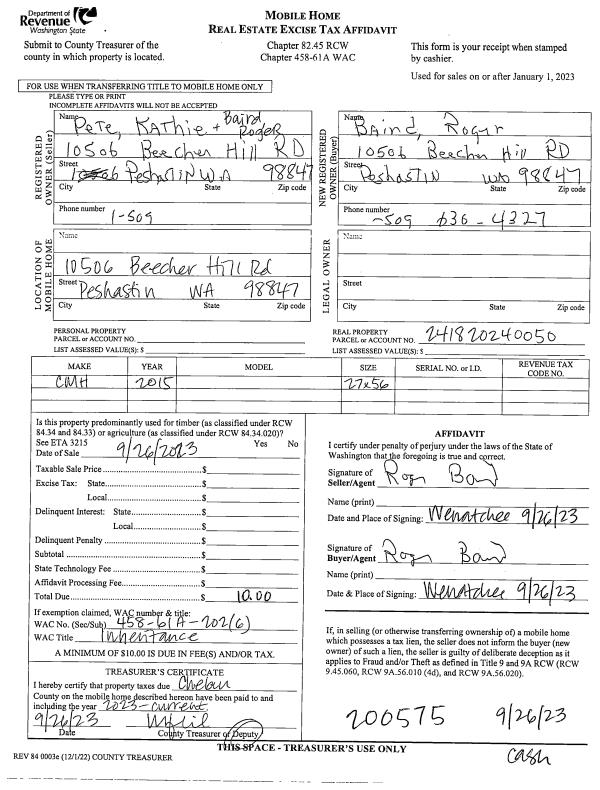 Department of
Revenue
Washington State
Submit to County Treasurer of the
county in which property is located.
MOBILE HOME
REAL ESTATE EXCISE TAX AFFIDAVIT
Chapter 82.45 RCW
Chapter 458-61A WAC
This form is your receipt when stamped
by cashier.
Used for sales on or after January 1, 2023
FOR USE WHEN TRANSFERRING TITLE TO MOBILE HOME ONLY
PLEASE TYPE OR PRINT
INCOMPLETE AFFIDAVITS WILL NOT BE ACCEPTED
REGISTERED
OWNER (Seller)
Name Pete, Kathie + Baird
Roger
10506 Beecher Hill RD
Street Peshastin WA 98847
City State Zip code
Phone number 1-509
NEW REGISTERED
OWNER (Buyer)
Name Baird, Roger
10506 Beecher Hill RD
Street Peshastin WA 98847
City State Zip code
Phone number -509 636-4327
LOCATION OF
MOBILE HOME
Name
10506 Beecher Hill Rd
Street Peshastin WA 98847
City State Zip code
LEGAL OWNER
Name
Street
City State Zip code
PERSONAL PROPERTY
PARCEL or ACCOUNT NO.
LIST ASSESSED VALUE(S): $
REAL PROPERTY
PARCEL or ACCOUNT NO. 241820240050
LIST ASSESSED VALUE(S): $
MAKE YEAR MODEL SIZE SERIAL NO. or I.D. REVENUE TAX
CODE NO.
CMH 2015 27x56
Is this property predominantly used for timber (as classified under RCW
84.34 and 84.33) or agriculture (as classified under RCW 84.34.020)?
See ETA 3215 Yes No
Date of Sale 9/26/2023
Taxable Sale Price $
Excise Tax: State $
Local $
Delinquent Interest: State $
Local $
Delinquent Penalty $
Subtotal $
State Technology Fee $
Affidavit Processing Fee $
Total Due $ 10.00
If exemption claimed, WAC number & title:
WAC No. (Sec/Sub) 458-61A-202(6)
WAC Title Inheritance
A MINIMUM OF $10.00 IS DUE IN FEE(S) AND/OR TAX.
TREASURER'S CERTIFICATE
I hereby certify that property taxes due Chelan
County on the mobile home described hereon have been paid to and
including the year 2023-current
9/26/23
Date County Treasurer or Deputy
AFFIDAVIT
I certify under penalty of perjury under the laws of the State of
Washington that the foregoing is true and correct.
Signature of
Seller/Agent Roger Baird
Name (print)
Date and Place of Signing: Wenatchee 9/26/23
Signature of
Buyer/Agent Roger Baird
Name (print)
Date & Place of Signing: Wenatchee 9/26/23
If, in selling (or otherwise transferring ownership of) a mobile home
which possesses a tax lien, the seller does not inform the buyer (new
owner) of such a lien, the seller is guilty of deliberate deception as it
applies to Fraud and/or Theft as defined in Title 9 and 9A RCW (RCW
9.45.060, RCW 9A.56.010 (4d), and RCW 9A.56.020).
200575 9/26/23
cash
THIS SPACE - TREASURER'S USE ONLY
REV 84 0003e (12/1/22) COUNTY TREASURER